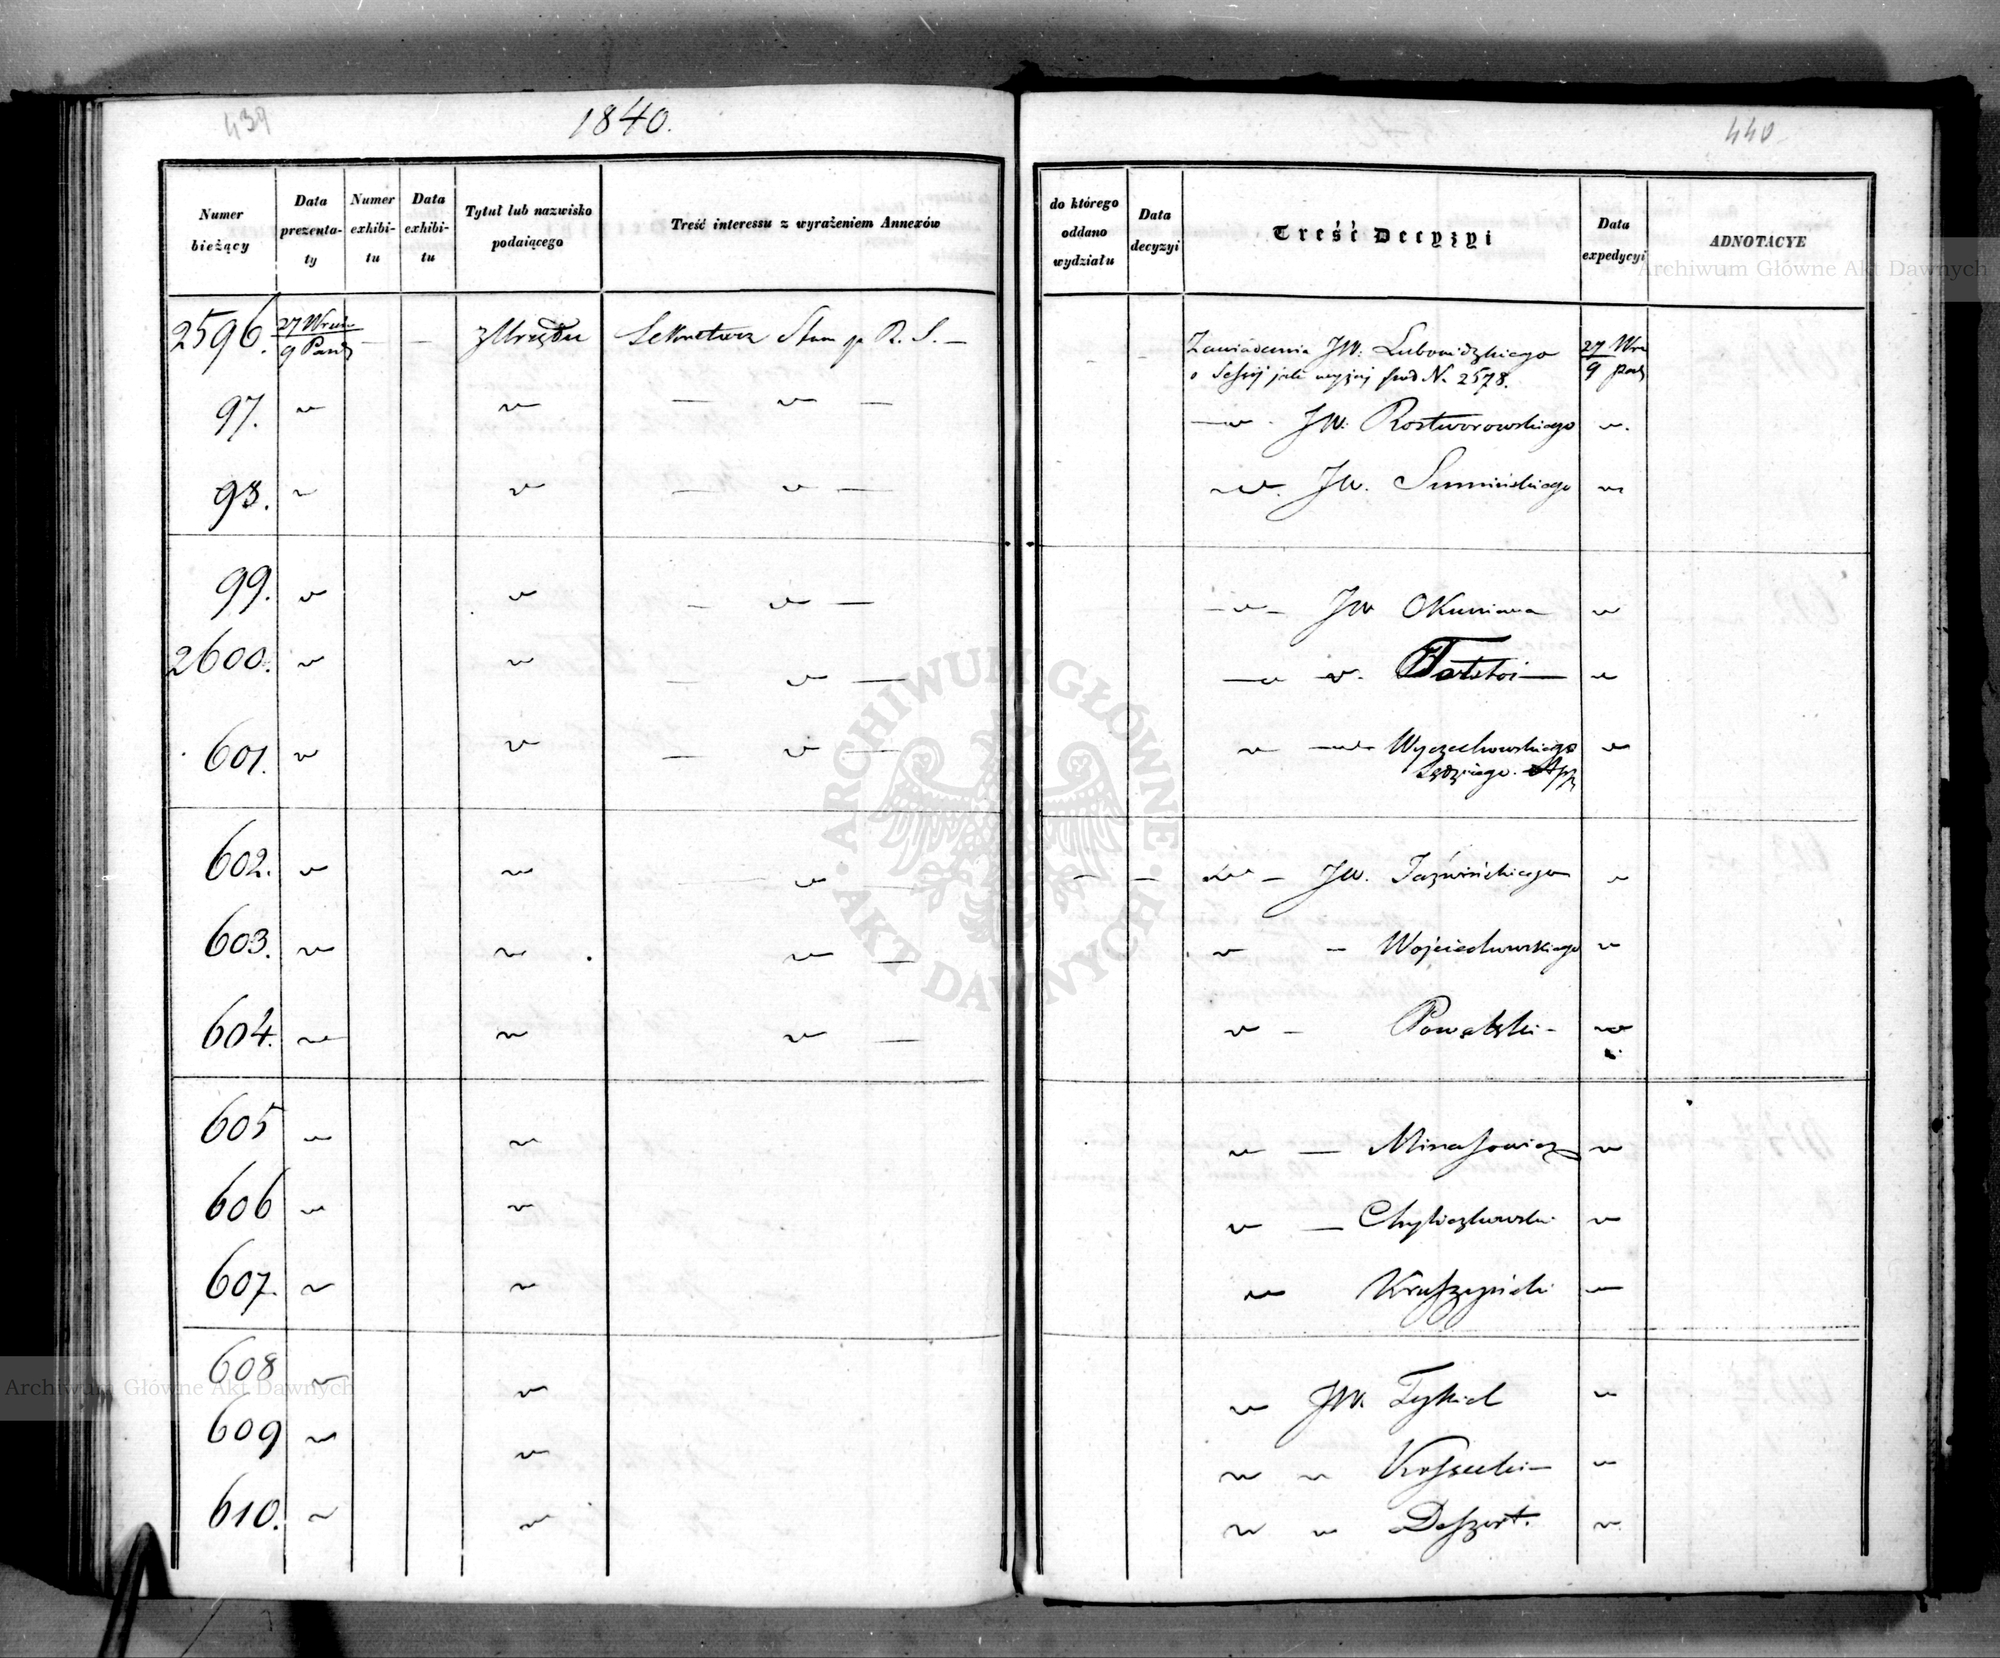 439
1840.
Numer bieżący
Data prezenta-ty
Numer exhibi-tu
Data exhibi-tu
Tytuł lub nazwisko podaiącego
Treść interessu z wyrażeniem Annexów
2596. 27 Wrześ / 9 Paźd — — z Urzędu Sekretarz Stanu R. S. —
97. " " — " —
98. " " — " —
99. " " — " —
2600. " " — " —
601. " " — " —
602. " " — " —
603. " " " —
604. " " " —
605 " "
606 " "
607. " "
608 " "
609 " "
610. " "
440
do którego oddano wydziału
Data decyzyi
Treść Decyzyi
Data expedycyi
ADNOTACYE
- - Zawiadamia JW. Lubowidzkiego 27 Wrz
o Sessyi jak wyżej pod N. 2578. 9 paź
— " JW. Rostworowskiego "
" JW. Sumińskiego "
— " — JW Okuniewa "
— " " "
" — " Wyczechowskiego "
Sędziego App
— — " — JW. Jaźwińskiego "
" — Wojciechowskiego "
" — Powalski — "
" — Minasowicz "
" — Chyliczkowski "
" Kruszyński —
" JW. Tykiel "
" " Kossecki — "
" " Deszert. "
ARCHIWUM GŁÓWNE AKT DAWNYCH
Archiwum Główne Akt Dawnych
Archiwum Główne Akt Dawnych